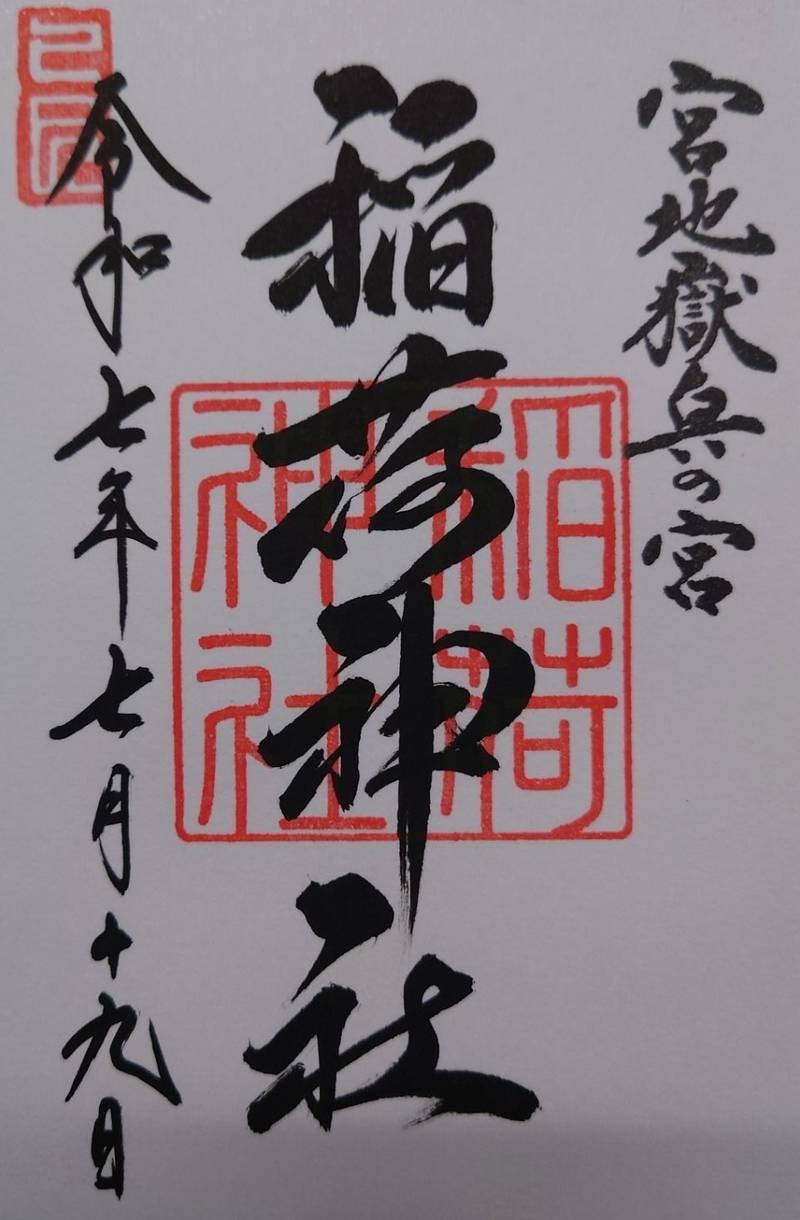 宮地嶽奥の宮
稲荷神社
令和七年七月十九日
稲荷
神社